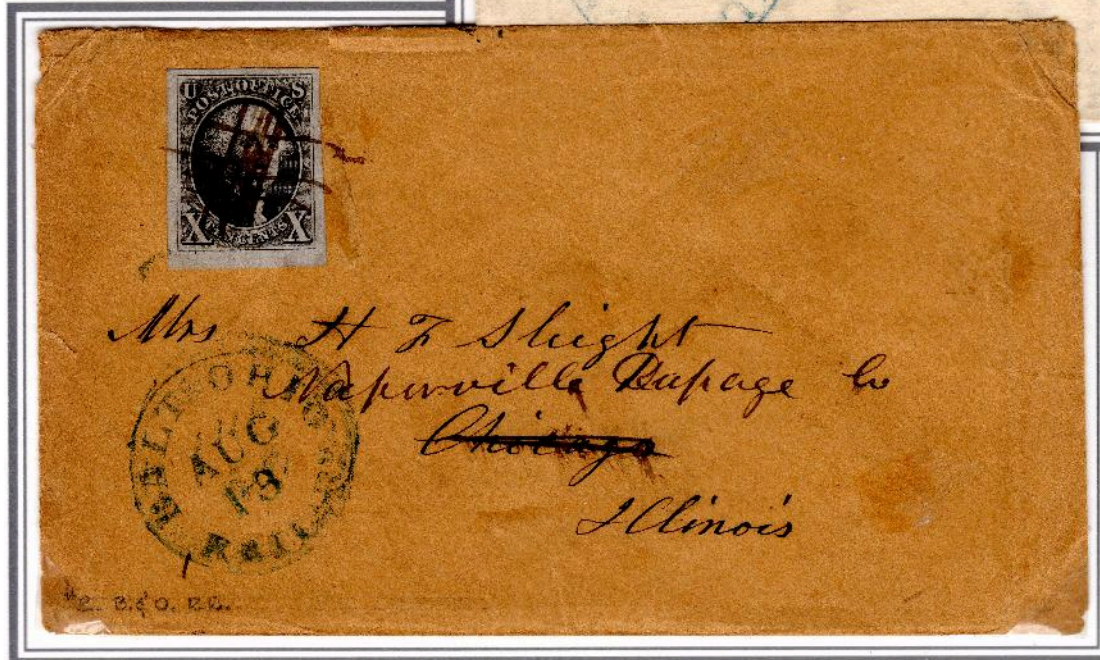 U S
POST OFFICE
X TEN CENTS X
Mrs H F Sleight
Naperville Dupage Co
Chicago
Illinois
BALT & OHIO R
AUG
13
Rail
B. & O. R.R.